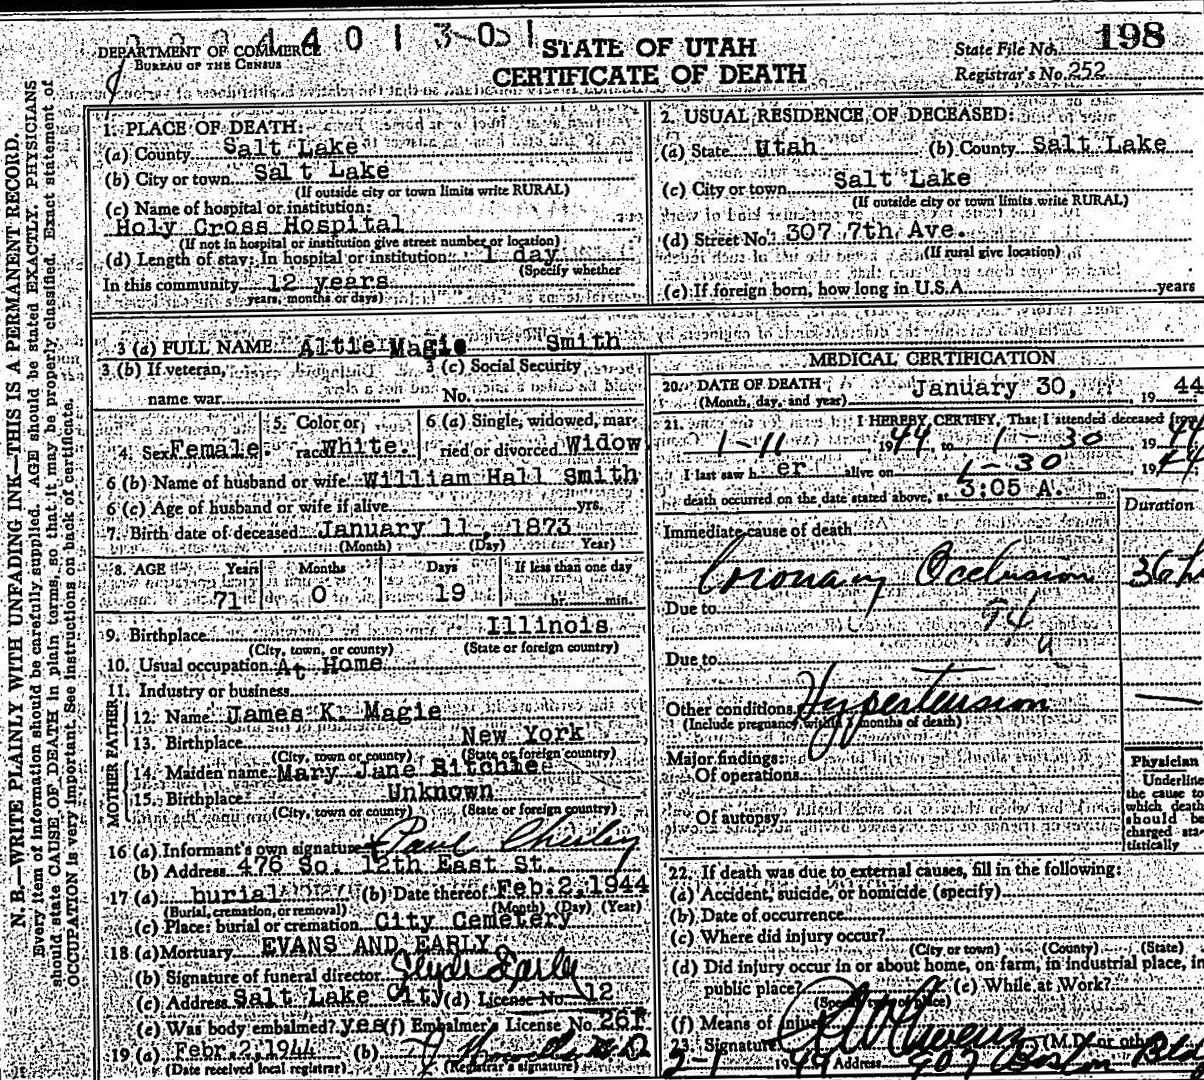 STATE OF UTAH
CERTIFICATE OF DEATH
DEPARTMENT OF COMMERCE
BUREAU OF THE CENSUS
State File No. 198
Registrar's No. 252
N. B.—WRITE PLAINLY WITH UNFADING INK—THIS IS A PERMANENT RECORD.
Every item of information should be carefully supplied. AGE should be stated EXACTLY. PHYSICIANS
should state CAUSE OF DEATH in plain terms, so that it may be properly classified. Exact statement of
OCCUPATION is very important. See instructions on back of certificate.
1. PLACE OF DEATH:
(a) County Salt Lake
(b) City or town Salt Lake
(If outside city or town limits write RURAL)
(c) Name of hospital or institution:
Holy Cross Hospital
(If not in hospital or institution give street number or location)
(d) Length of stay: In hospital or institution 1 day
(Specify whether
In this community 12 years
years, months or days)
2. USUAL RESIDENCE OF DECEASED:
(a) State Utah (b) County Salt Lake
(c) City or town Salt Lake
(If outside city or town limits write RURAL)
(d) Street No. 307 7th Ave.
(If rural give location)
(e) If foreign born, how long in U.S.A. years
3 (a) FULL NAME Altie Magie Smith
3 (b) If veteran, 3 (c) Social Security
name war No.
4. Sex Female 5. Color or race White 6 (a) Single, widowed, married or divorced Widow
6 (b) Name of husband or wife William Hall Smith
6 (c) Age of husband or wife if alive yrs.
7. Birth date of deceased January 11, 1873
(Month) (Day) Year)
8. AGE Years Months Days If less than one day
71 0 19 hr. min.
9. Birthplace Illinois
(City, town, or county) (State or foreign country)
10. Usual occupation At Home
11. Industry or business
FATHER
12. Name James K. Magie
13. Birthplace New York
(City, town or county) (State or foreign country)
MOTHER
14. Maiden name Mary Jane Ritchie
15. Birthplace Unknown
(City, town or county) (State or foreign country)
16 (a) Informant's own signature Paul
(b) Address 476 So. 12th East St.
17 (a) burial (b) Date thereof Feb. 2, 1944
(Burial, cremation, or removal) (Month) (Day) (Year)
(c) Place: burial or cremation City Cemetery
18 (a) Mortuary EVANS AND EARLY
(b) Signature of funeral director Early
(c) Address Salt Lake City (d) License No. 12
(e) Was body embalmed? yes (f) Embalmer's License No.
19 (a) Febr. 2, 1944 (b)
(Date received local registrar) (Registrar's signature)
MEDICAL CERTIFICATION
20. DATE OF DEATH January 30, 19 44
(Month, day, and year)
21. I HEREBY CERTIFY, That I attended deceased from
1-11 1944, to 1-30 1944
I last saw h er alive on 1-30 1944
death occurred on the date stated above, at 3:05 A. m.
Duration
Immediate cause of death
Coronary Occlusion 36
Due to 94
Due to
Other conditions Hypertension
(Include pregnancy within 3 months of death)
Major findings:
Of operations
Of autopsy
Physician
Underline
the cause to
which death
should be
charged sta-
tistically
22. If death was due to external causes, fill in the following:
(a) Accident, suicide, or homicide (specify)
(b) Date of occurrence
(c) Where did injury occur?
(City or town) (County) (State)
(d) Did injury occur in or about home, on farm, in industrial place, in
public place? (e) While at Work?
(Specify type of place)
(f) Means of Injury
23 Signature (M.D. or other)
2-1 1944 Address 907 Boston Bldg